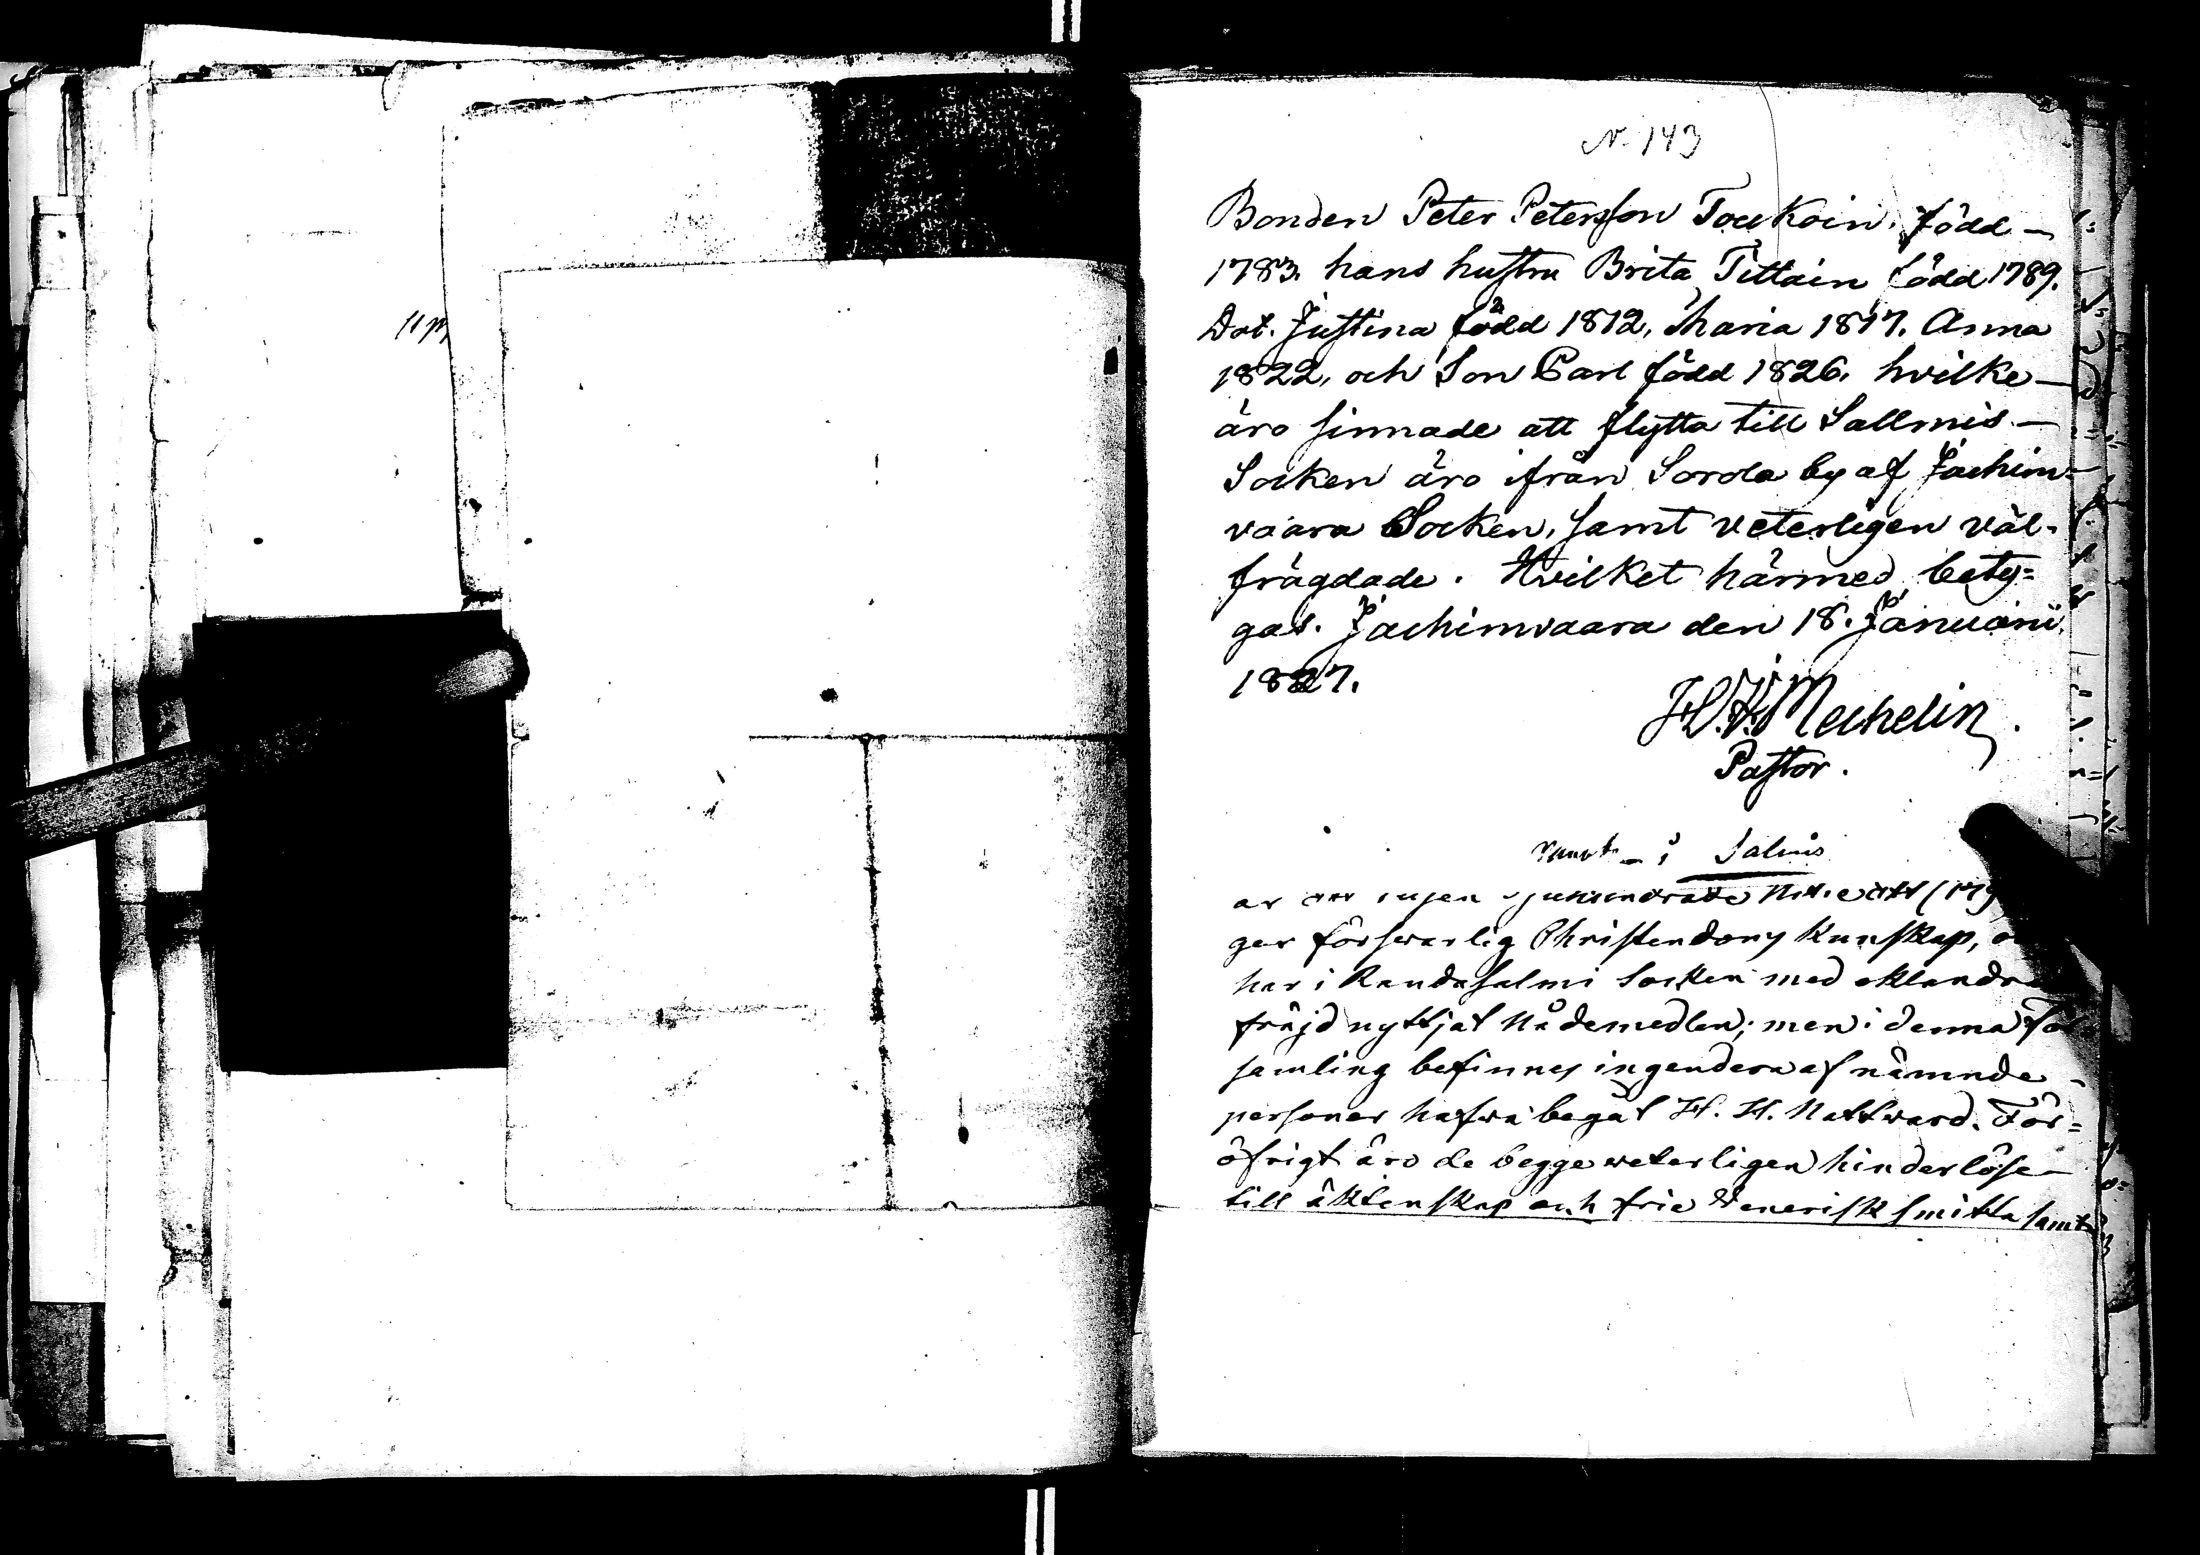 N. 143
Bonden Peter Petersson Toukoin, född
1783. hans hustru Brita Tittain född 1789.
Dot. Justina född 1812, Maria 1817. Anna
1822, och Son Carl född 1826. hvilke
äro sinnade att flytta till Sallmis
Socken äro ifrån Sorola by af Jachim-
vaara Socken, samt veterligen väl-
frägdade. Hvilket härmed bety=
gas. Jachimvaara den 18. Januarii
1827.
Mechelin.
Pastor.
i Salmis
ger förswarlig Christendoms kunskap,
har i Randasalmi Socken med oklandr
fräjd nyttjat nådemedlen; men i denna För
samling befinnes ingendera af nämnde
personer hafwa begåt H. H. Nattward. För=
öfrigt äro de begge weterligen hinderlöse
till äktenskap och frie Wenerisk smitta samt